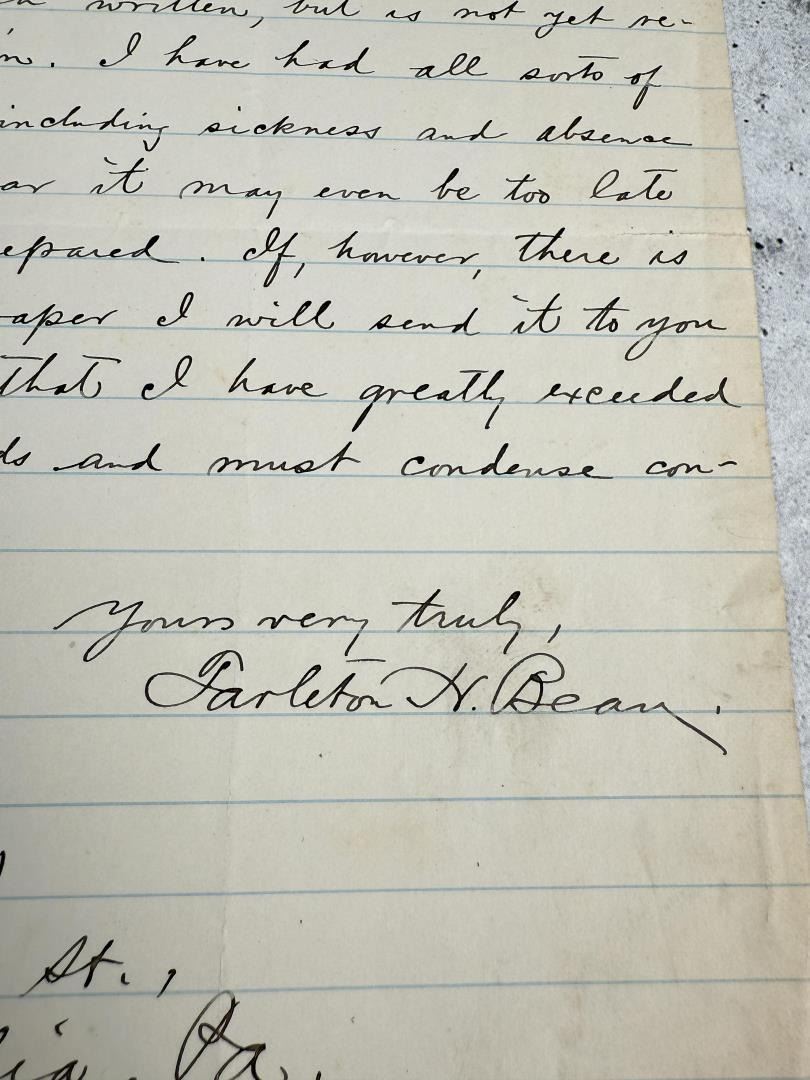 written, but is not yet re-
I have had all sorts of
including sickness and absence
it may even be too late
epared. If, however, there is
aper I will send it to you
that I have greatly exceeded
ds and must condense con-
Yours very truly,
Tarleton H. Bean.
St.,
ia, Pa.